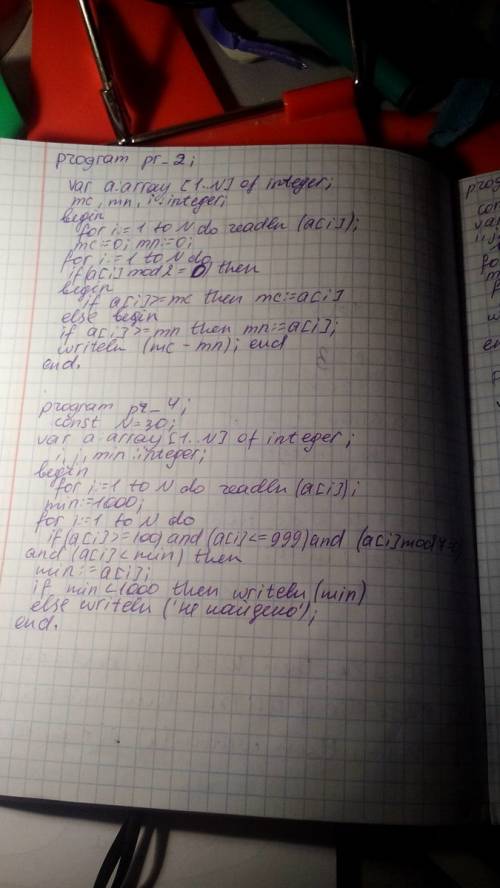 program pr-2;
var a:array [1..N] of integer;
mc, mn, i: integer;
begin
for i:=1 to N do readln (a[i]);
mc:=0; mn:=0;
for i:=1 to N do
if (a[i] mod 2=0) then
begin
if a[i]>=mc then mc:=a[i]
else begin
if a[i]>=mn then mn:=a[i];
writeln (mc-mn); end
end.
program pr-4;
const N=30;
var a:array [1..N] of integer;
i, j, min: integer;
begin
for i:=1 to N do readln (a[i]);
min:=1000;
for i:=1 to N do
if (a[i]>=100) and (a[i]<=999) and (a[i] mod 7
and (a[i]<min) then
min:=a[i];
if min<1000 then writeln (min)
else writeln ('не найдено');
end.
prog
con
va
i, j
fo
m
en